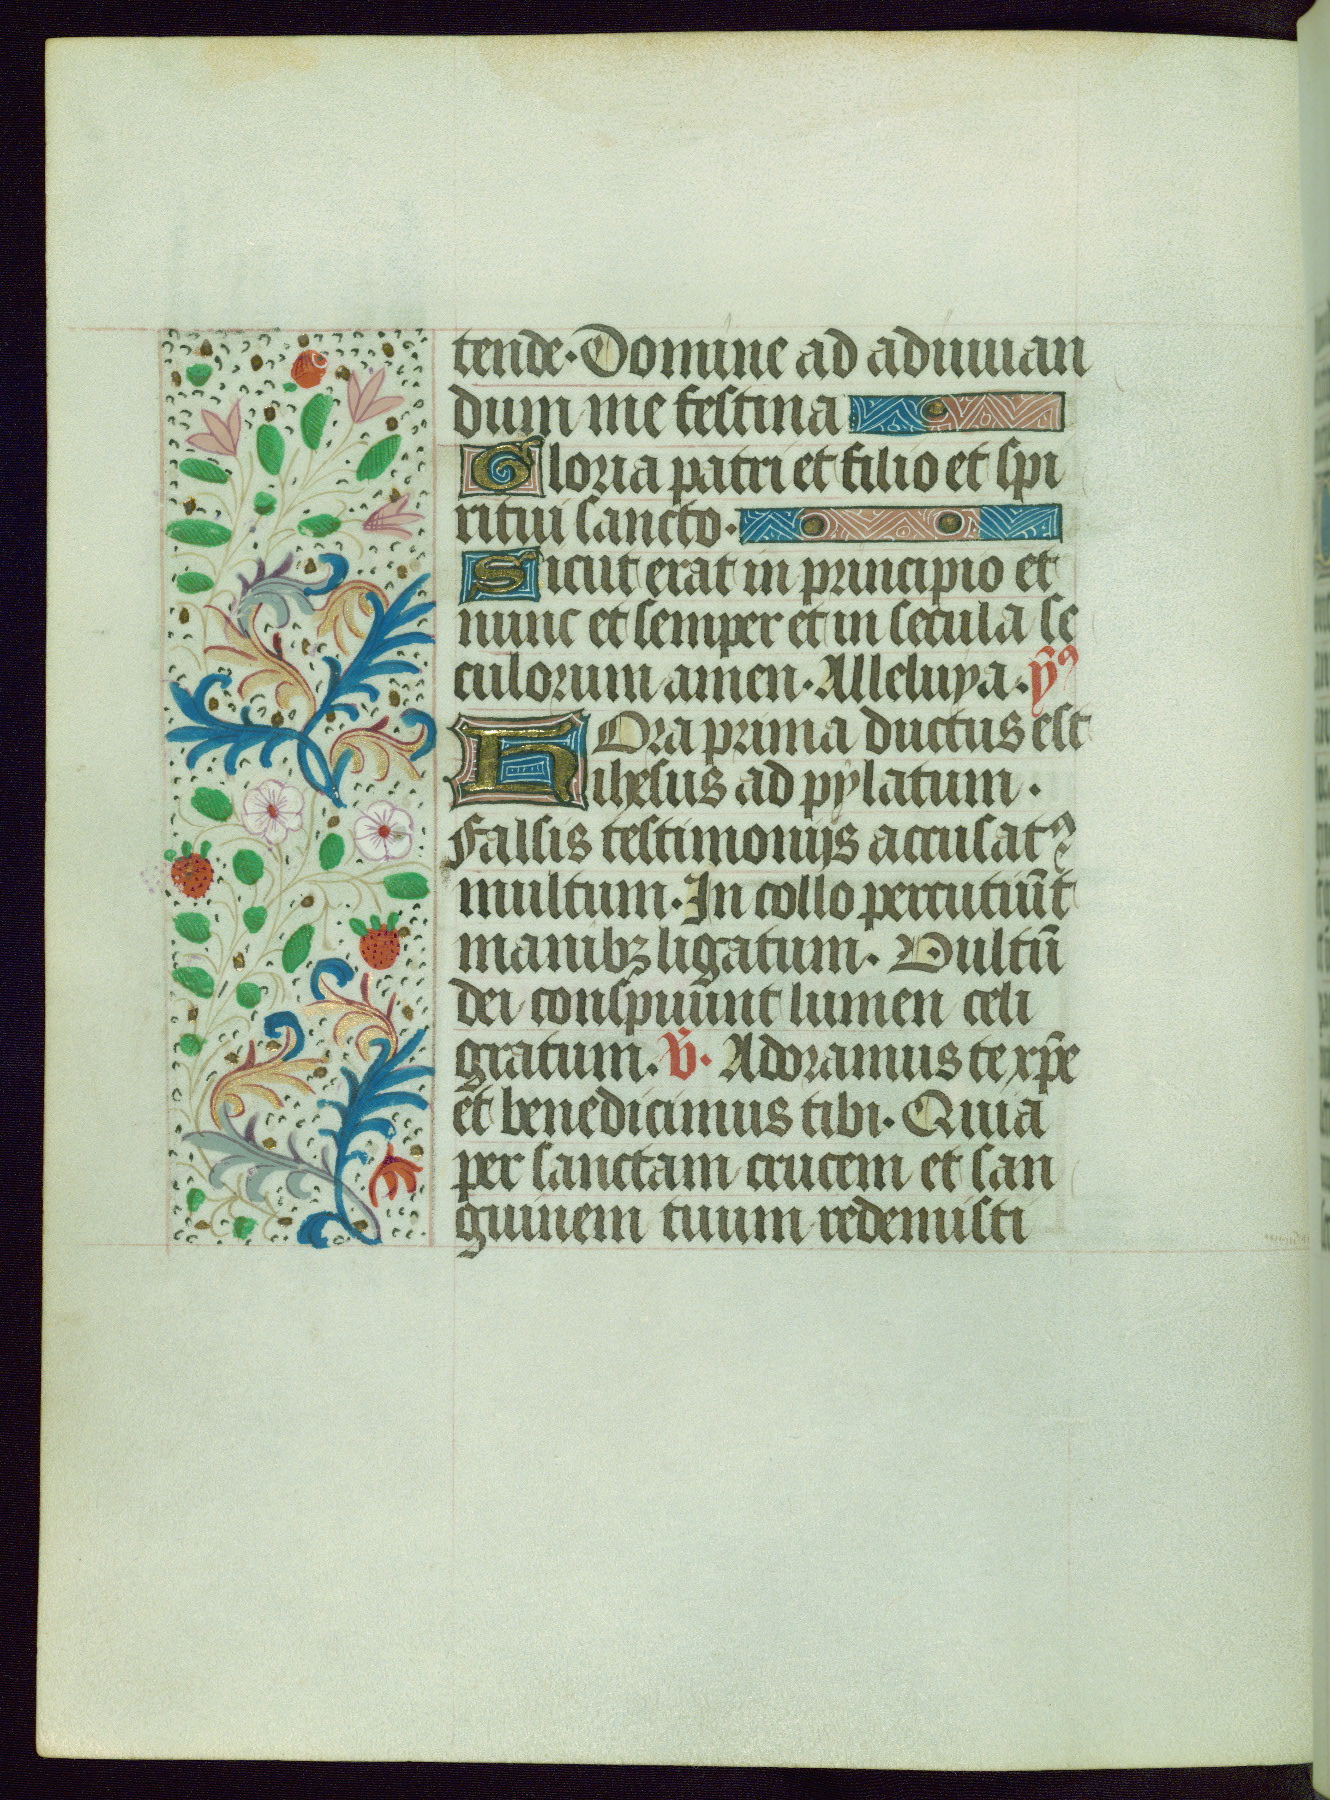 tende. Domine ad adiuuan
dum me festina
Gloria patri et filio et spi
ritui sancto.
Sicut erat in principio et
nunc et semper et in secula se
culorum amen. Alleluya. ỹꝰ
HOra prima ductus est
ihesus ad pylatum.
Falsis testimonijs accusatꝰ
multum. In collo percutiūt
manibꝫ ligatum. Uultū
dei conspuūnt lumen celi
gratum. v̄. Adoramus te xp̄e
et benedicimus tibi. Quia
per sanctam crucem et san
guinem tuum redemisti